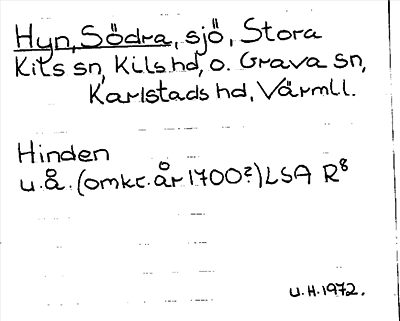 Hyn, Södra, sjö, Stora
Kils sn, Kils hd, o. Grava sn,
Karlstads hd, Värml.
Hinden
u.å. (omkr. år 1700?) LSA R8
U.H. 1972.